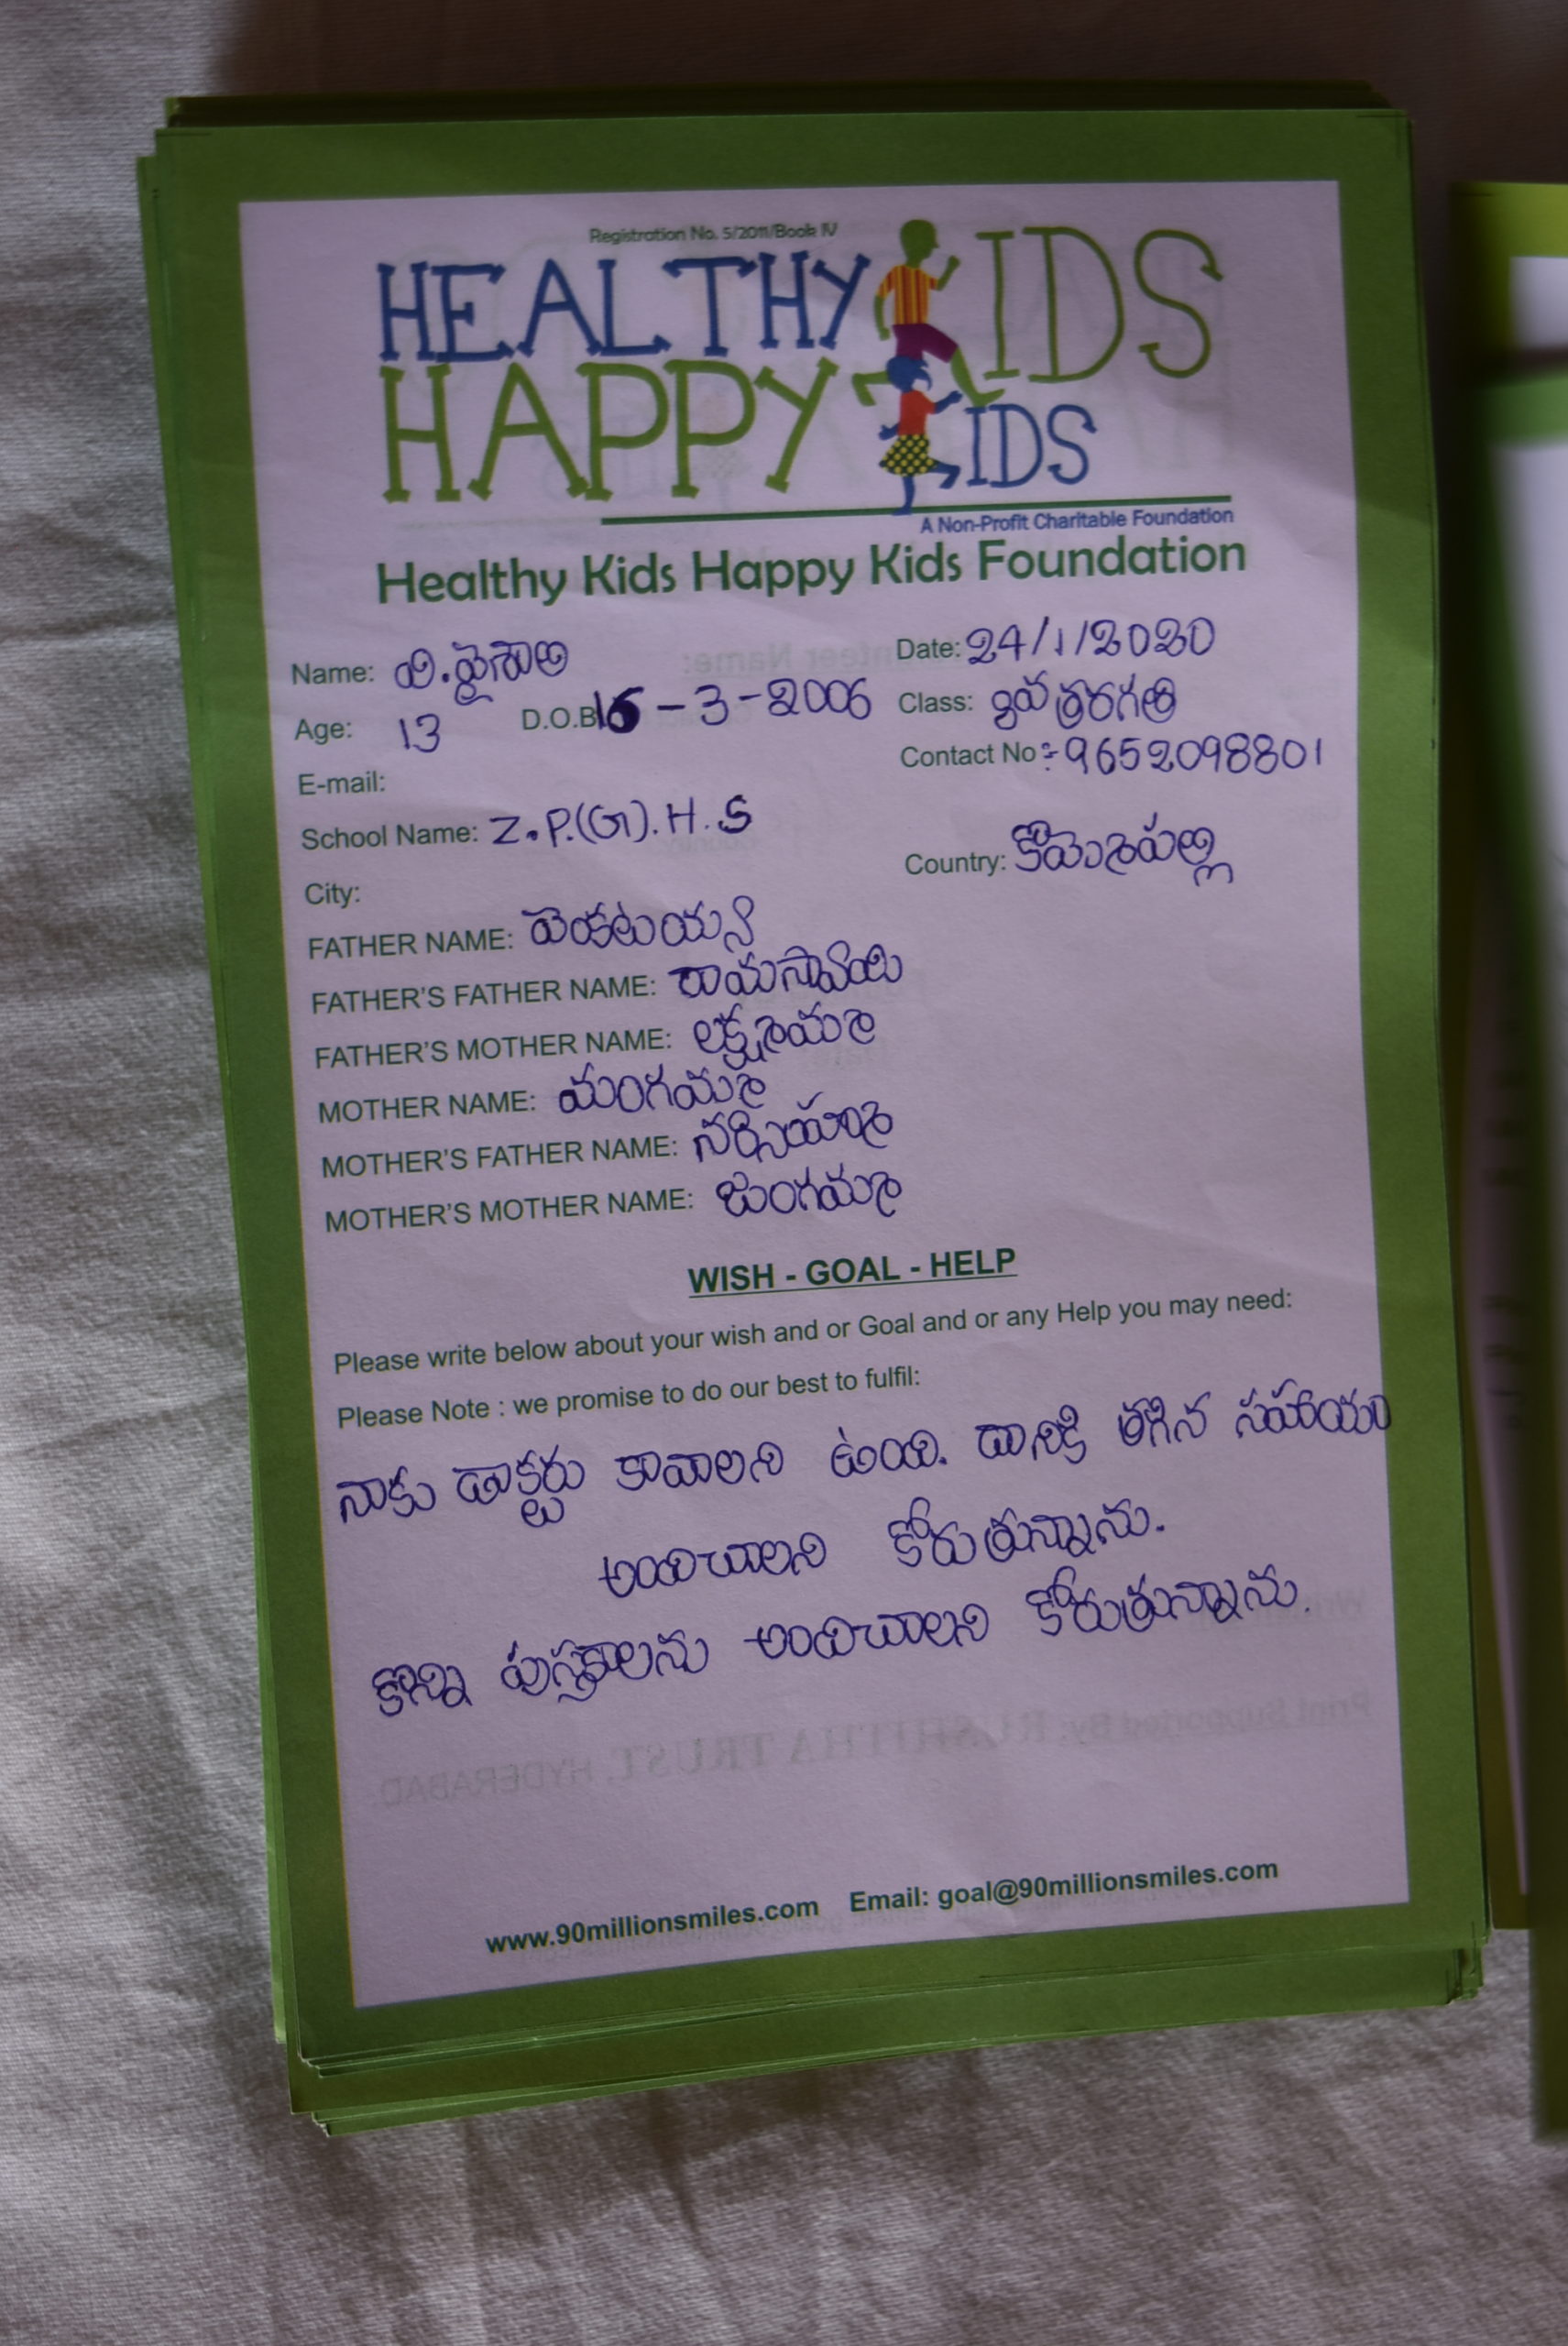 Registration No. 5/2011/Book IV
HEALTHY KIDS
HAPPY KIDS
A Non-Profit Charitable Foundation
Healthy Kids Happy Kids Foundation
Name: వి.వైశాలి Date: 24/1/2020
Age: 13 D.O.B 16-3-2006 Class: 8వ తరగతి
E-mail: Contact No :- 9652098801
School Name: Z.P.(G).H.S
City: Country: కొమెరపల్లి
FATHER NAME: వెంకటయ్య
FATHER'S FATHER NAME: రామస్వామి
FATHER'S MOTHER NAME: లక్ష్మమ్మ
MOTHER NAME: మంగమ్మ
MOTHER'S FATHER NAME: నర్సింహ్మ
MOTHER'S MOTHER NAME: జంగమ్మ
WISH - GOAL - HELP
Please write below about your wish and or Goal and or any Help you may need:
Please Note : we promise to do our best to fulfil:
నాకు డాక్టర్టు కావాలని ఉంది. దానికి తగిన సహాయం
అందిచాలని కోరుతున్నాను.
కొన్ని పుస్తకాలను అందిచాలని కోరుతున్నాను.
Print Supported By: RUSHITHA TRUST, HYDERABAD.
www.90millionsmiles.com Email: goal@90millionsmiles.com